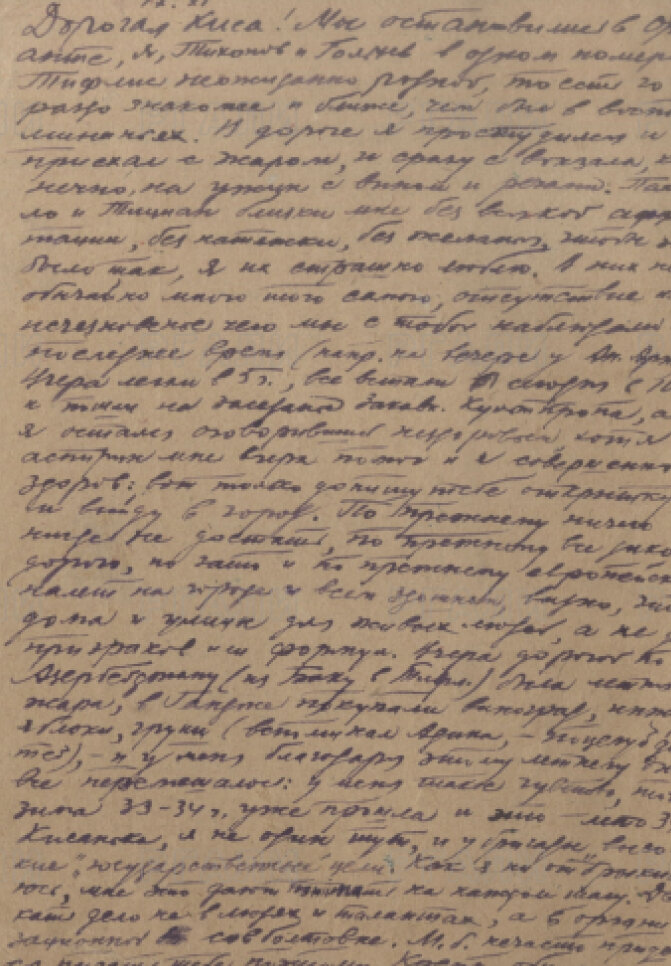 Дорогая Киса! Мы остановились в Ори
анте, я, Тихонов и Гольцев в одном номере
Тифлис неожиданно родной, то есть го
раздо знакомее и ближе, чем был в воспо
минаньях. В дороге я простудился и
приехал с жаром, и сразу с вокзала, ко
нечно, на ужин с вином и речами. Пао
ло и Тициан близки мне без всякой аффек
тации, без натяжки, без желанья, чтобы это
было так, я их страшно люблю. В них не
обычайно много того самого, отсутствие и
исчезновение чего мы с тобой наблюдали
последнее время (напр. на вечере у Ан.
Вчера легли в 5 ч., все встали и сегодня с
к на заседание Закавк. Культпропа, а
я остался оговорившись нездоровьем хотя
аспирин мне вчера помог и я совершенно
здоров; вот только допишу тебе открытку
и выйду в город. По прежнему ничего
нигде не достать, по прежнему все
дорого, но зато и по прежнему европейский
налет на городе и всем видно, что
дома и улицы для живых людей, а не для
призраков или формул. Вчера дорогой по
Азербейджану (из Баку в Тифл.) была летняя
жара, в Гандже покупали виноград,
яблоки, груши (вспоминал Адика, – поцелуй
его), – и у меня благодаря этому летнему дню
все перемешалось: у меня такое чувство, что
зима 33–34 г. уже прошла и это – лето 3
Кисанька, я не один тут, и у бригады высо
кие, „государственные" цели. Как я ни отбрыкива
юсь, мне это дают понять на каждом шагу.
дело не в людях и талантах, а в органи
зационной совболтовне. М. б. нечасто придет
ся писать тебе